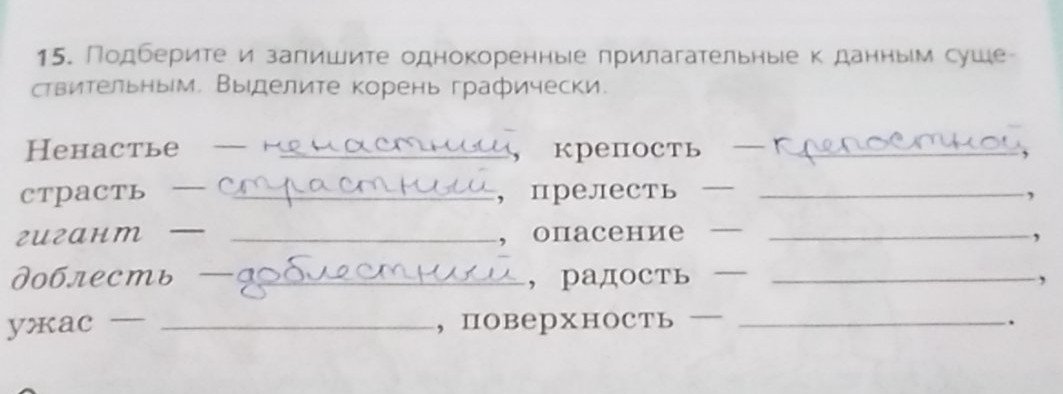 15. Подберите и запишите однокоренные прилагательные к данным суще-
ствительным. Выделите корень графически.
Ненастье — ненастный, крепость — крепостной,
страсть — страстный, прелесть — ,
гигант — , опасение — ,
доблесть — доблестный, радость — ,
ужас — , поверхность — .